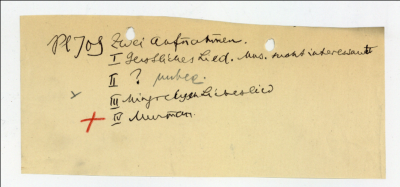 Pl 709 Zwei Aufnahmen.
I Geistliches Lied. Mus. nicht interessant
II ? unbek.
III Mingrelisches Liebeslied
IV